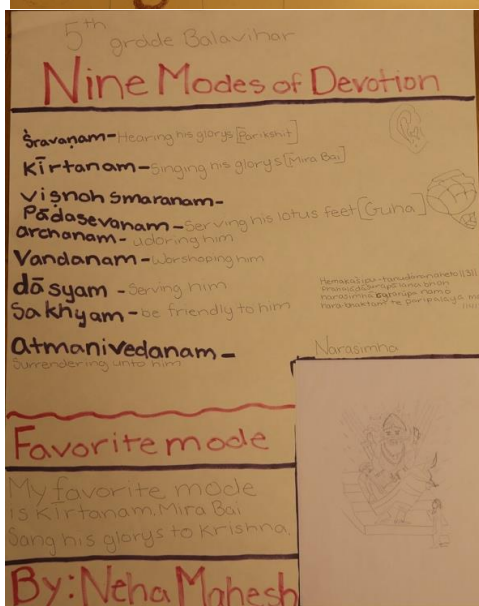 5th grade Balavihar
Nine Modes of Devotion
Śravaṇam-Hearing his glorys [Parikshit]
Kīrtanam-Singing his glorys [Mira Bai]
viṣnoh smaraṇam-
Pādasevanam-Serving his lotus feet [Guha]
archanam-adoring him
Vandanam-Worshoping him
dāsyam -Serving him
Sakhyam-be friendly to him
atmanivedanam-
Surrendering unto him
narasimha namo
Narasimha
Favorite mode
My favorite mode
is Kīrtanam. Mira Bai
Sang his glorys to Krishna.
By: Neha Mahesh